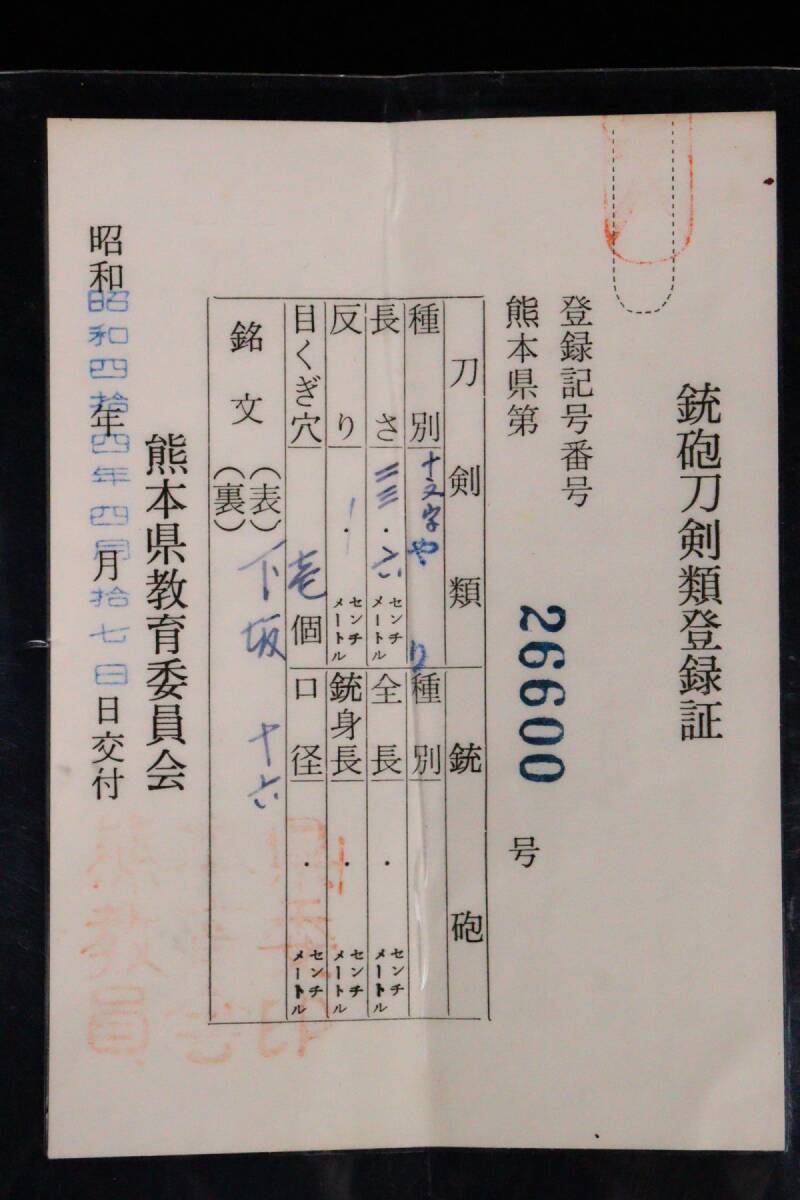 銃砲刀剣類登録証
登録記号番号
熊本県第 26600 号
刀剣類 銃砲
種別 十文字やり 種別
長さ 三三・六 センチメートル 全長 ・ センチメートル
反り ・ センチメートル 銃身長 ・ センチメートル
目くぎ穴 壱個 口径 ・ センチメートル
銘文 (表) 下坂 十六
(裏)
熊本県教育委員会
昭和 年 月 日交付
昭和四拾四年四月拾七日